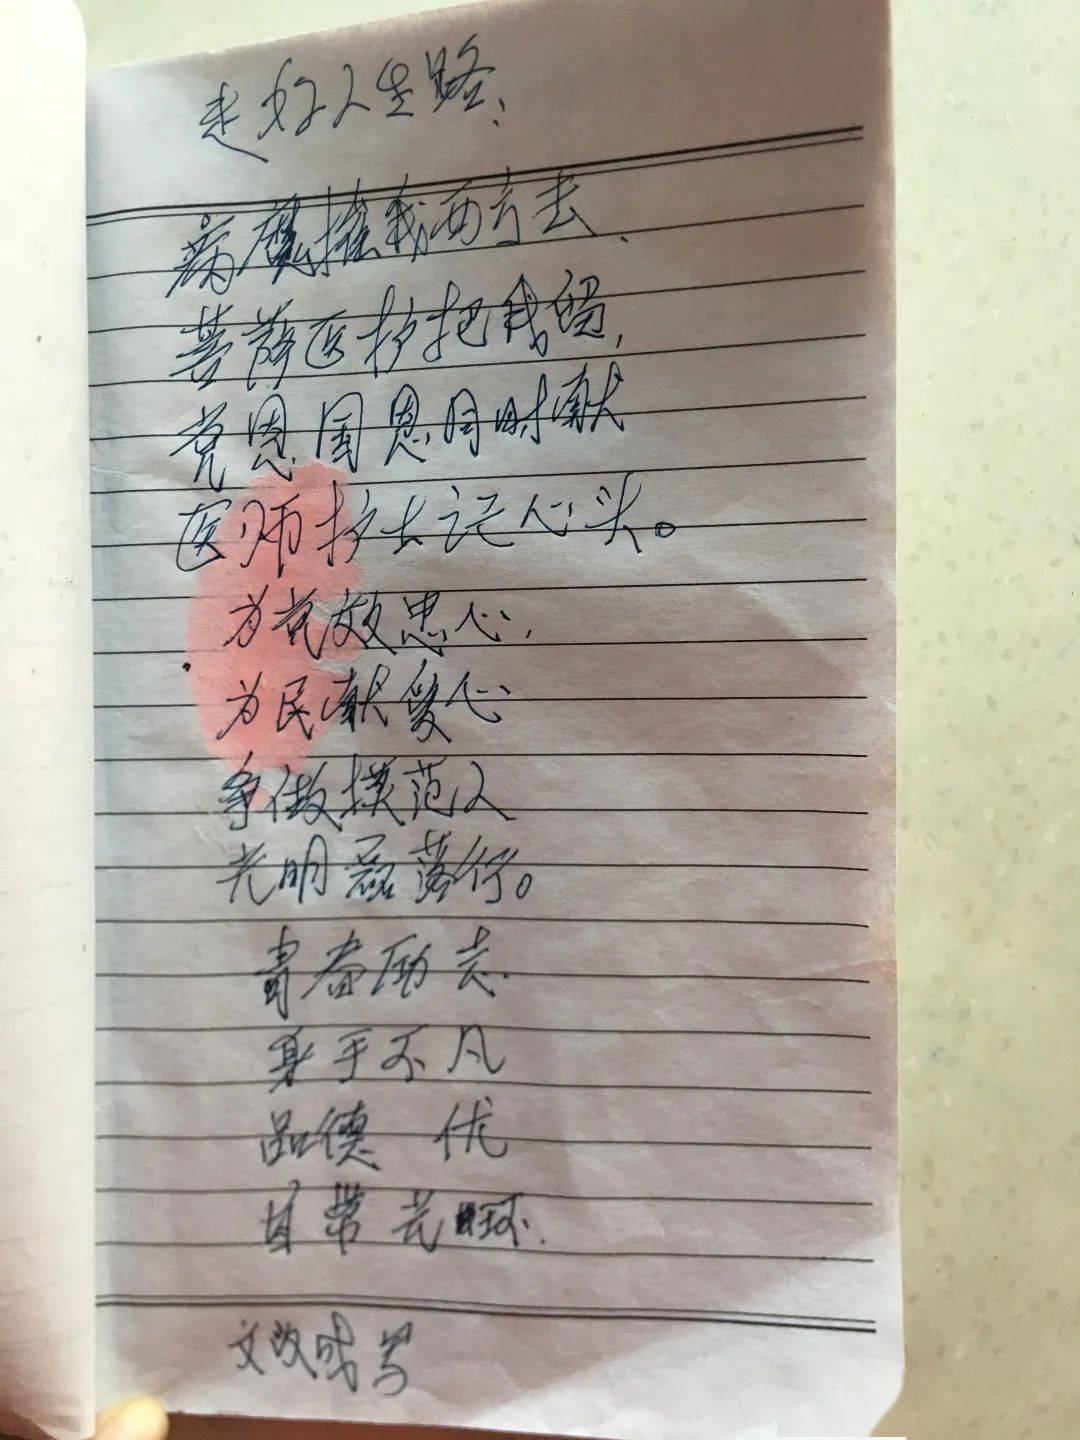 走好人生路、
病魔摧我西方去、
菩萨医护把我留,
党恩国恩同时献
医师护士记心头。
为党效忠心,
为民献爱心
争做模范人
光明磊落行。
青春励志.
身手不凡
品德 优
自带光环.
文改成写